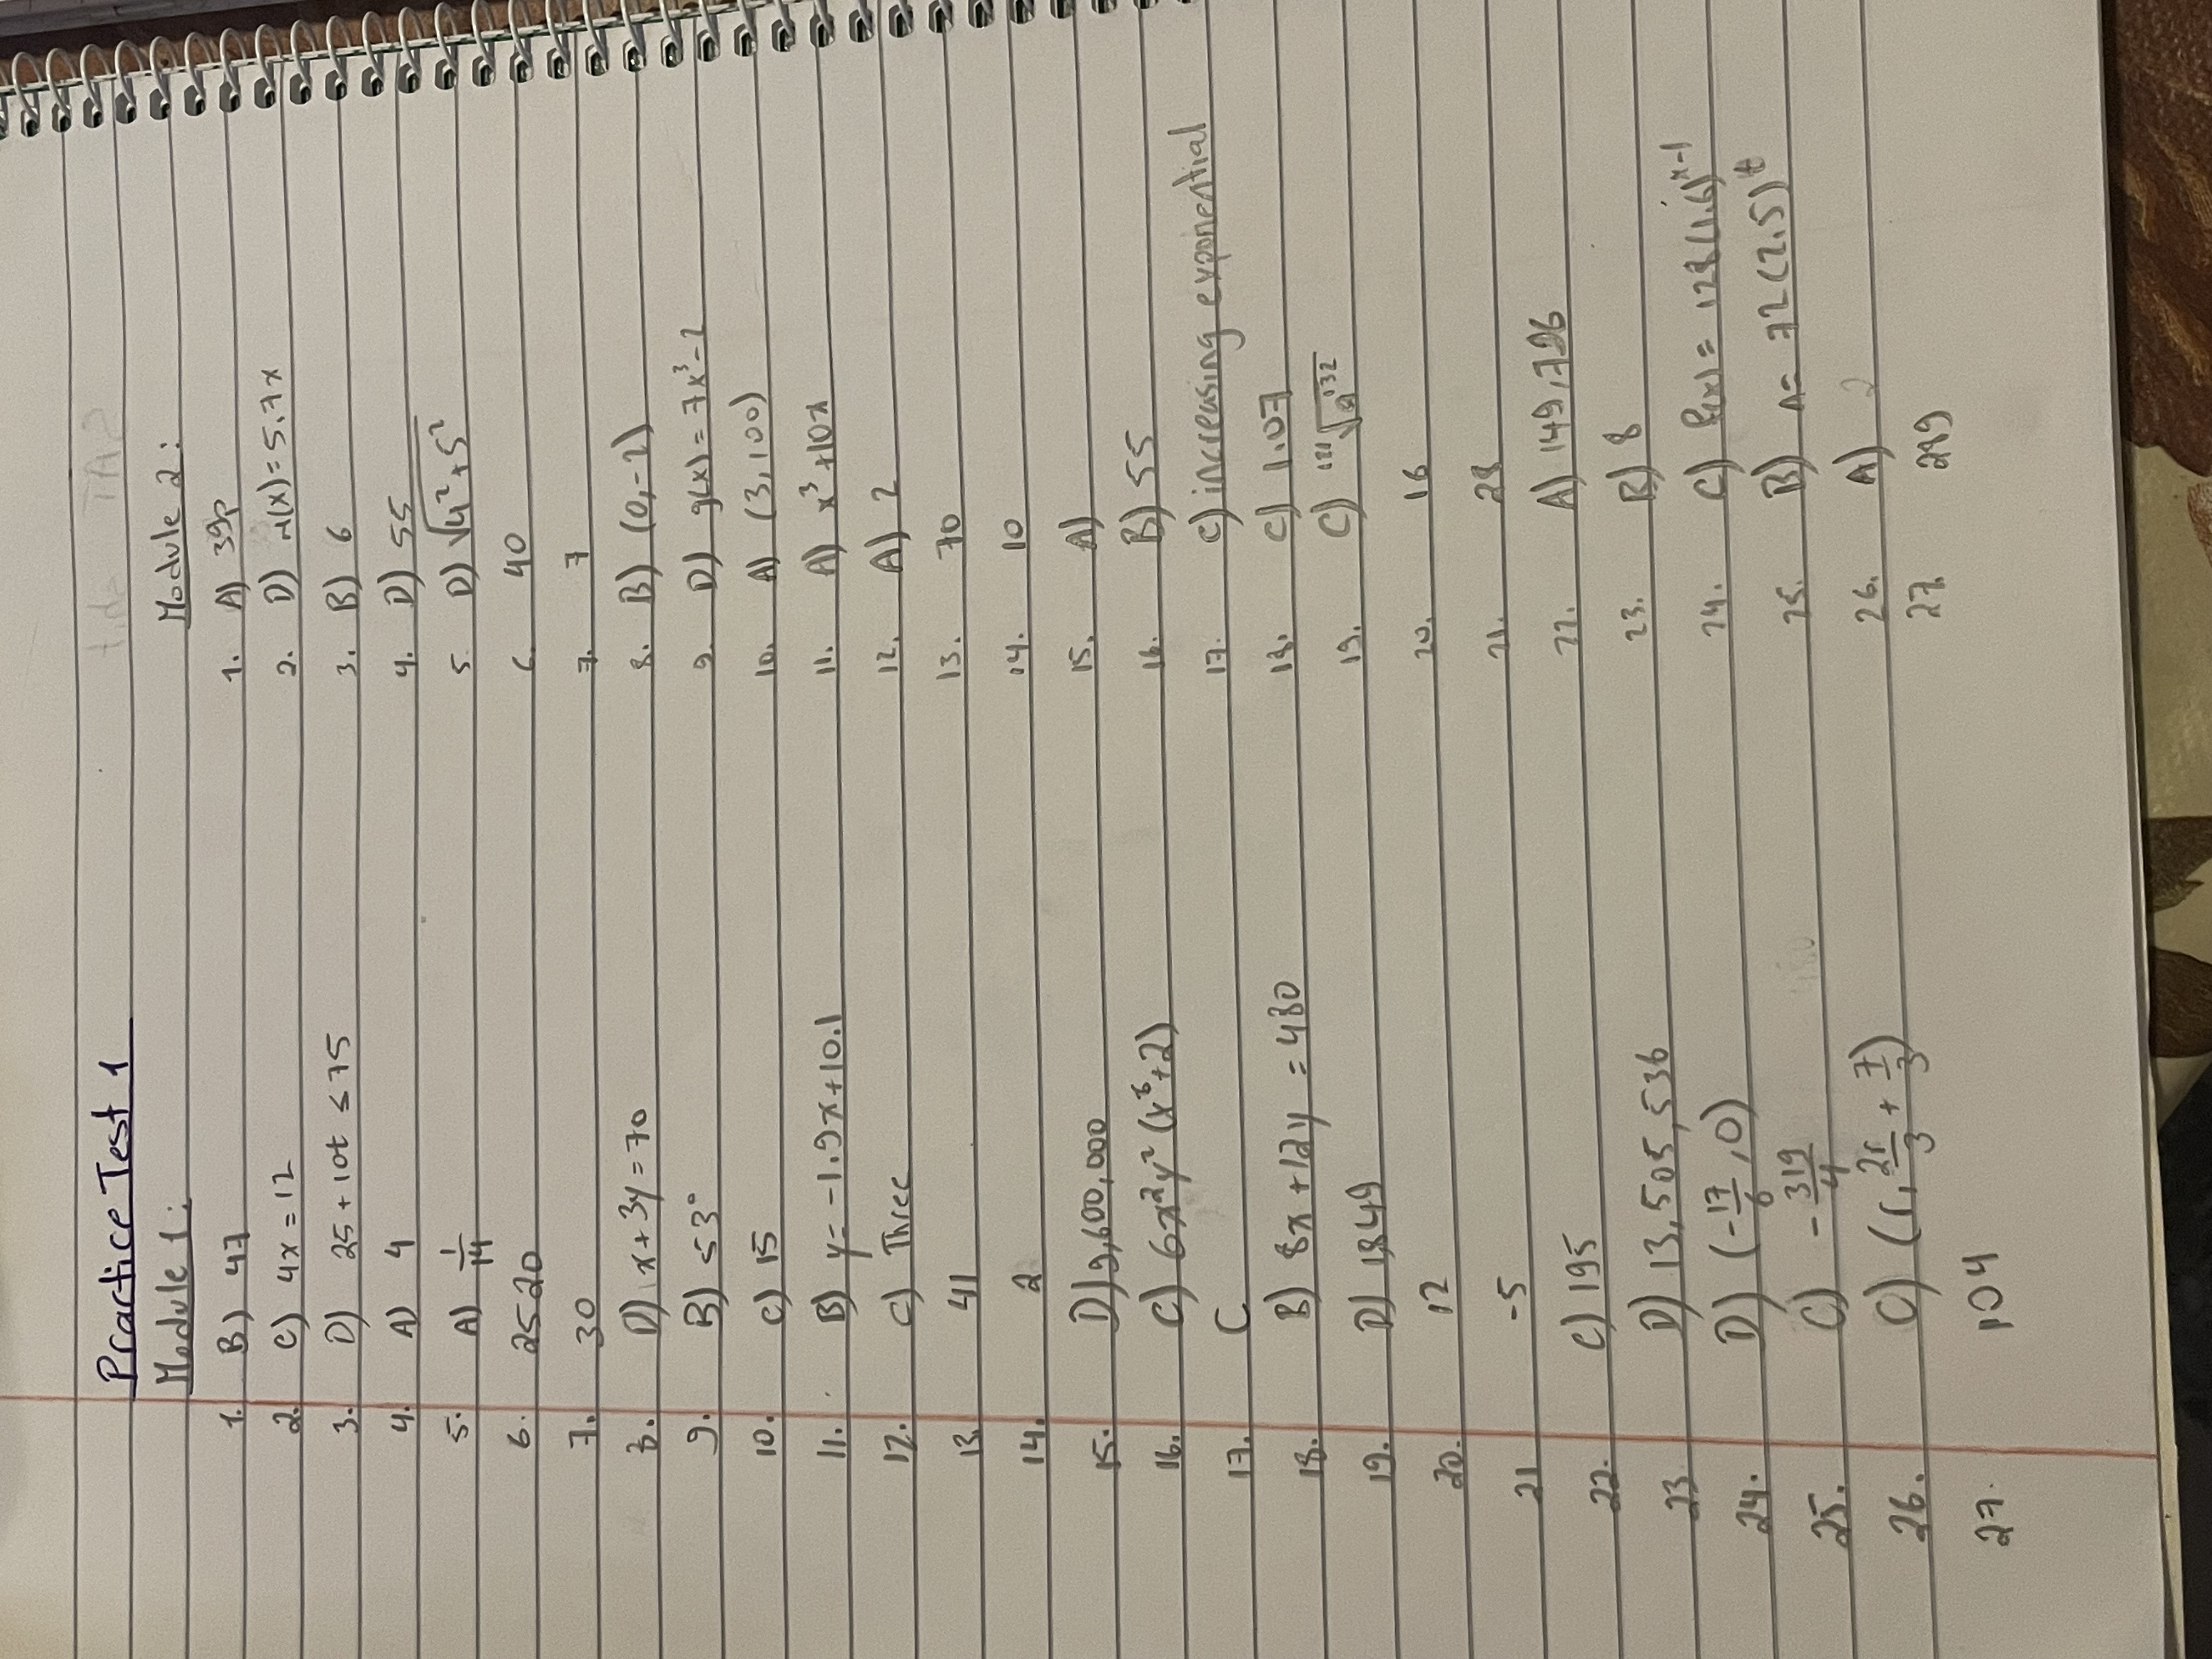 Practice Test 1
Module 1:
1. B) 47
2. C) 4x = 12
3. D) 25 + 10t ≤ 75
4. A) 4
5. A) 1/14
6. 2520
7. 30
8. D) x + 3y = 70
9. B) 53°
10. C) 15
11. B) y = -1.9x + 10.1
12. C) Three
13. 41
14. 2
15. D) 9,600,000
16. C) 6x²y²(x⁶+2)
17. C
18. B) 8x + 12y = 480
19. D) 1849
20. 12
21 -5
22. C) 195
23 D) 13,505,536
24. D) (-17/6, 0)
25. C) -319/4
26. C) (r, 2r/3 + 7/3)
27. 104
Module 2:
1. A) 39p
2. D) N(x) = 5.7x
3. B) 6
4. D) 55
5. D) √4²+5²
6. 40
7. 7
8. B) (0, -2)
9. D) g(x) = 7x³-2
10. A) (3, 100)
11. A) x³ + 10x
12. A) 2
13. 70
14. 10
15. A)
16. B) 55
17. C) increasing exponential
18. C) 1.07
19. C)
20. 16
21. 28
22. A) 149,726
23. B) 8
24. C) f(x) = 128(1.6)ˣ⁻¹
25. B) A = 72(2.5)ᵗ
26. A) 2
27. 289